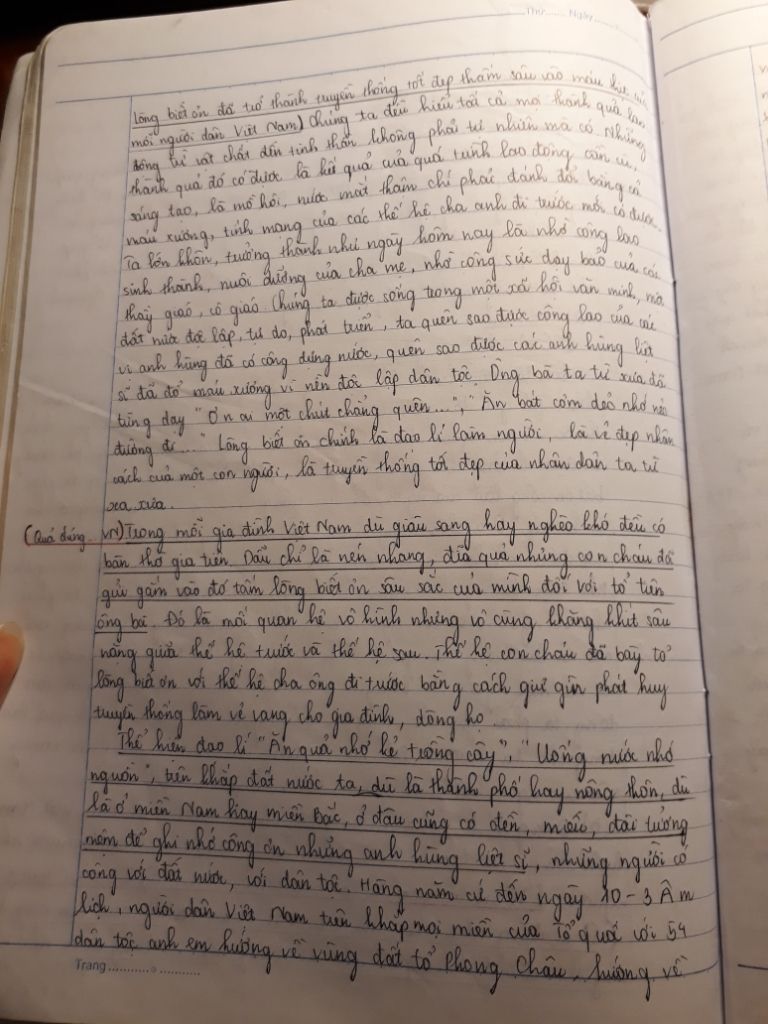 Thứ....... Ngày.......
Lòng biết ơn đã trở thành truyền thống tốt đẹp thấm sâu vào máu thịt
mỗi người dân Việt Nam) Chúng ta đều hiểu tất cả mọi thành quả lao
động từ vật chất đến tinh thần không phải tự nhiên mà có. Những
thành quả đó có được là kết quả của quá trình lao động cần cù,
sáng tạo, là mồ hôi, nước mắt thậm chí phải đánh đổi bằng cả
máu xương, tính mạng của các thế hệ cha anh đi trước mới có được.
Ta lớn khôn, trưởng thành như ngày hôm nay là nhờ công lao
sinh thành, nuôi dưỡng của cha mẹ, nhờ công sức dạy bảo của các
thầy giáo, cô giáo. Chúng ta được sống trong một xã hội văn minh, một
đất nước độc lập, tự do, phát triển, ta quên sao được công lao của các
vị anh hùng đã có công dựng nước, quên sao được các anh hùng liệt
sĩ đã đổ máu xương vì nền độc lập dân tộc. Ông bà ta từ xưa đã
từng dạy "Ơn ai một chút chẳng quên...", "Ăn bát cơm dẻo nhớ nẻo
đường đi..." Lòng biết ơn chính là đạo lí làm người, là vẻ đẹp nhân
cách của một con người, là truyền thống tốt đẹp của nhân dân ta từ
xa xưa.
(Quả đúng vậy) Trong mỗi gia đình Việt Nam dù giàu sang hay nghèo khó đều có
bàn thờ gia tiên. Dẫu chỉ là nén nhang, đĩa quả nhưng con cháu đã
gửi gắm vào đó tấm lòng biết ơn sâu sắc của mình đối với tổ tiên
ông bà. Đó là mối quan hệ vô hình nhưng vô cùng khăng khít sâu
nặng giữa thế hệ trước và thế hệ sau. Thế hệ con cháu đã bày tỏ
lòng biết ơn với thế hệ cha ông đi trước bằng cách giữ gìn phát huy
truyền thống làm vẻ vang cho gia đình, dòng họ.
Thể hiện đạo lí "Ăn quả nhớ kẻ trồng cây", "Uống nước nhớ
nguồn", trên khắp đất nước ta, dù là thành phố hay nông thôn, dù
là ở miền Nam hay miền Bắc, ở đâu cũng có đền, miếu, đài tưởng
niệm để ghi nhớ công ơn những anh hùng liệt sĩ, những người có
công với đất nước, với dân tộc. Hàng năm cứ đến ngày 10-3 Âm
lịch, người dân Việt Nam trên khắp mọi miền của Tổ quốc với 54
dân tộc anh em hướng về vùng đất tổ Phong Châu, hướng về
Trang.....................